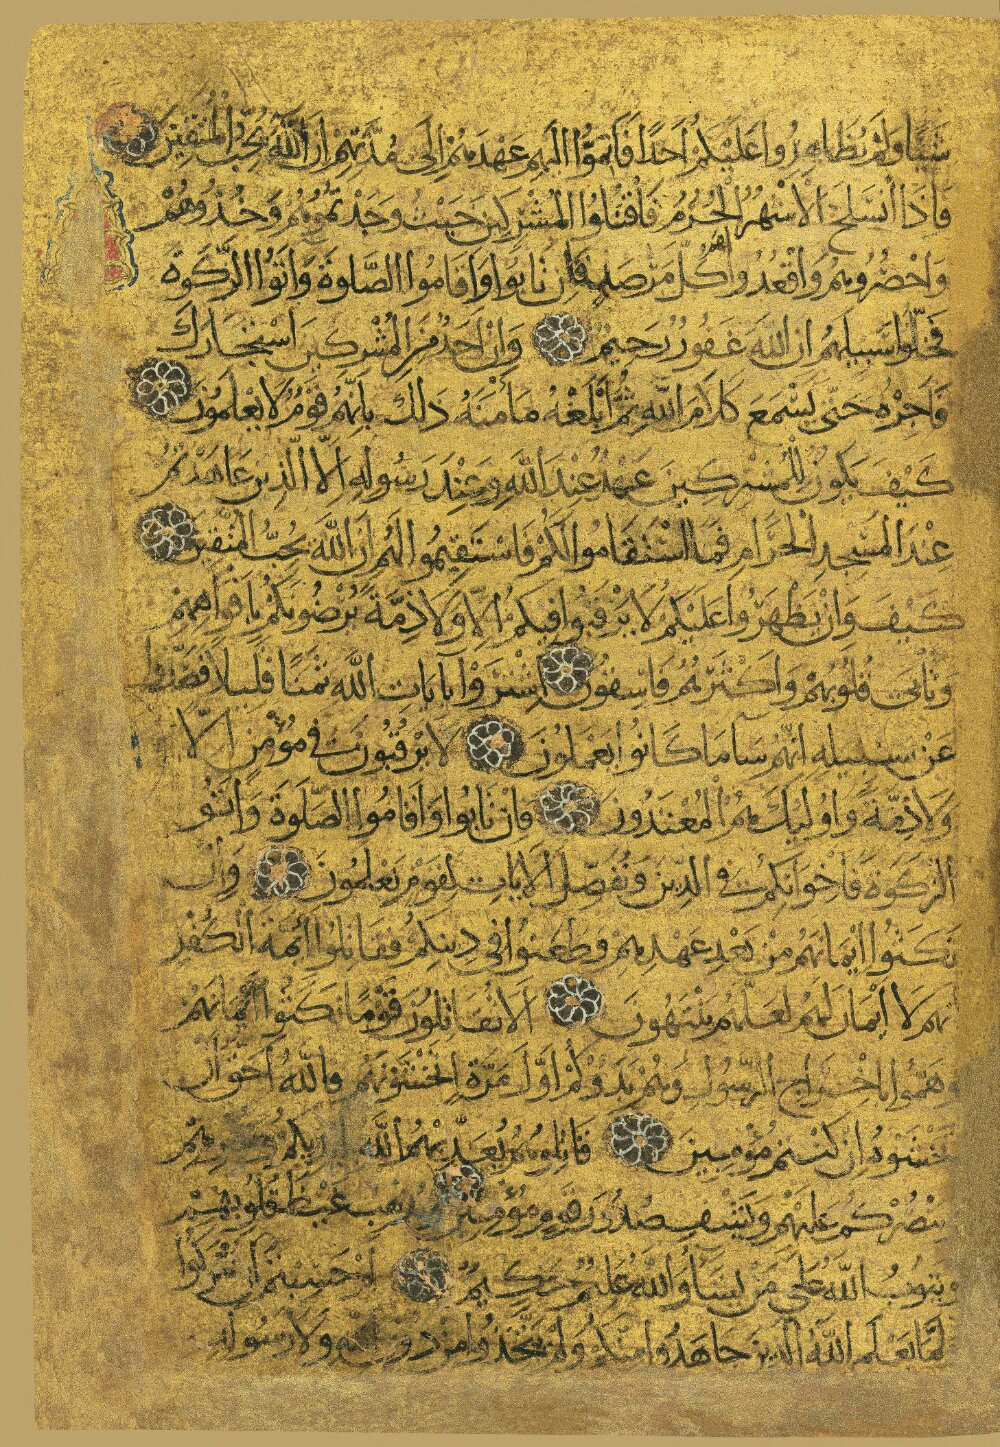 شيئا ولم يظاهروا عليكم احدا فاتموا اليهم عهدهم الى مدتهم ان الله يحب المتقين
فاذا انسلخ الاشهر الحرم فاقتلوا المشركين حيث وجدتموهم وخذوهم
واحصروهم واقعدوا لهم كل مرصد فان تابوا واقاموا الصلوة واتوا الزكوة
فخلوا سبيلهم ان الله غفور رحيم وان احد من المشركين استجارك
فاجره حتى يسمع كلام الله ثم ابلغه مامنه ذلك بانهم قوم لا يعلمون
كيف يكون للمشركين عهد عند الله وعند رسوله الا الذين عاهدتم
عند المسجد الحرام فما استقاموا لكم فاستقيموا لهم ان الله يحب المتقين
كيف وان يظهروا عليكم لا يرقبوا فيكم الا ولا ذمة يرضونكم بافواههم
وتابى قلوبهم واكثرهم فاسقون اشتروا بايات الله ثمنا قليلا فصدوا
عن سبيله انهم سا ما كانوا يعملون لا يرقبون في مؤمن الا
ولا ذمة واوليك هم المعتدون فان تابوا واقاموا الصلوة واتو
الزكوة فاخوانكم في الدين ونفصل الايات لقوم يعلمون وان
نكثوا ايمانهم من بعد عهدهم وطعنوا في دينكم فقاتلوا ائمة الكفر
انهم لا ايمان لهم لعلهم ينتهون الا تقاتلون قوما نكثوا ايمانهم
وهموا باخراج الرسول وهم بدوكم اول مرة اتخشونهم فالله احق ان
تخشوه ان كنتم مؤمنين قاتلوهم يعذبهم الله بايديكم ويخزهم
ينصركم عليهم ويشف صدور قوم مؤمنين ويذهب غيظ قلوبهم
ويتوب الله على من يشا والله عليم حكيم ام حسبتم ان تتركوا
لما يعلم الله الذين جاهدوا منكم ولم يتخذوا من دون الله ولا رسوله